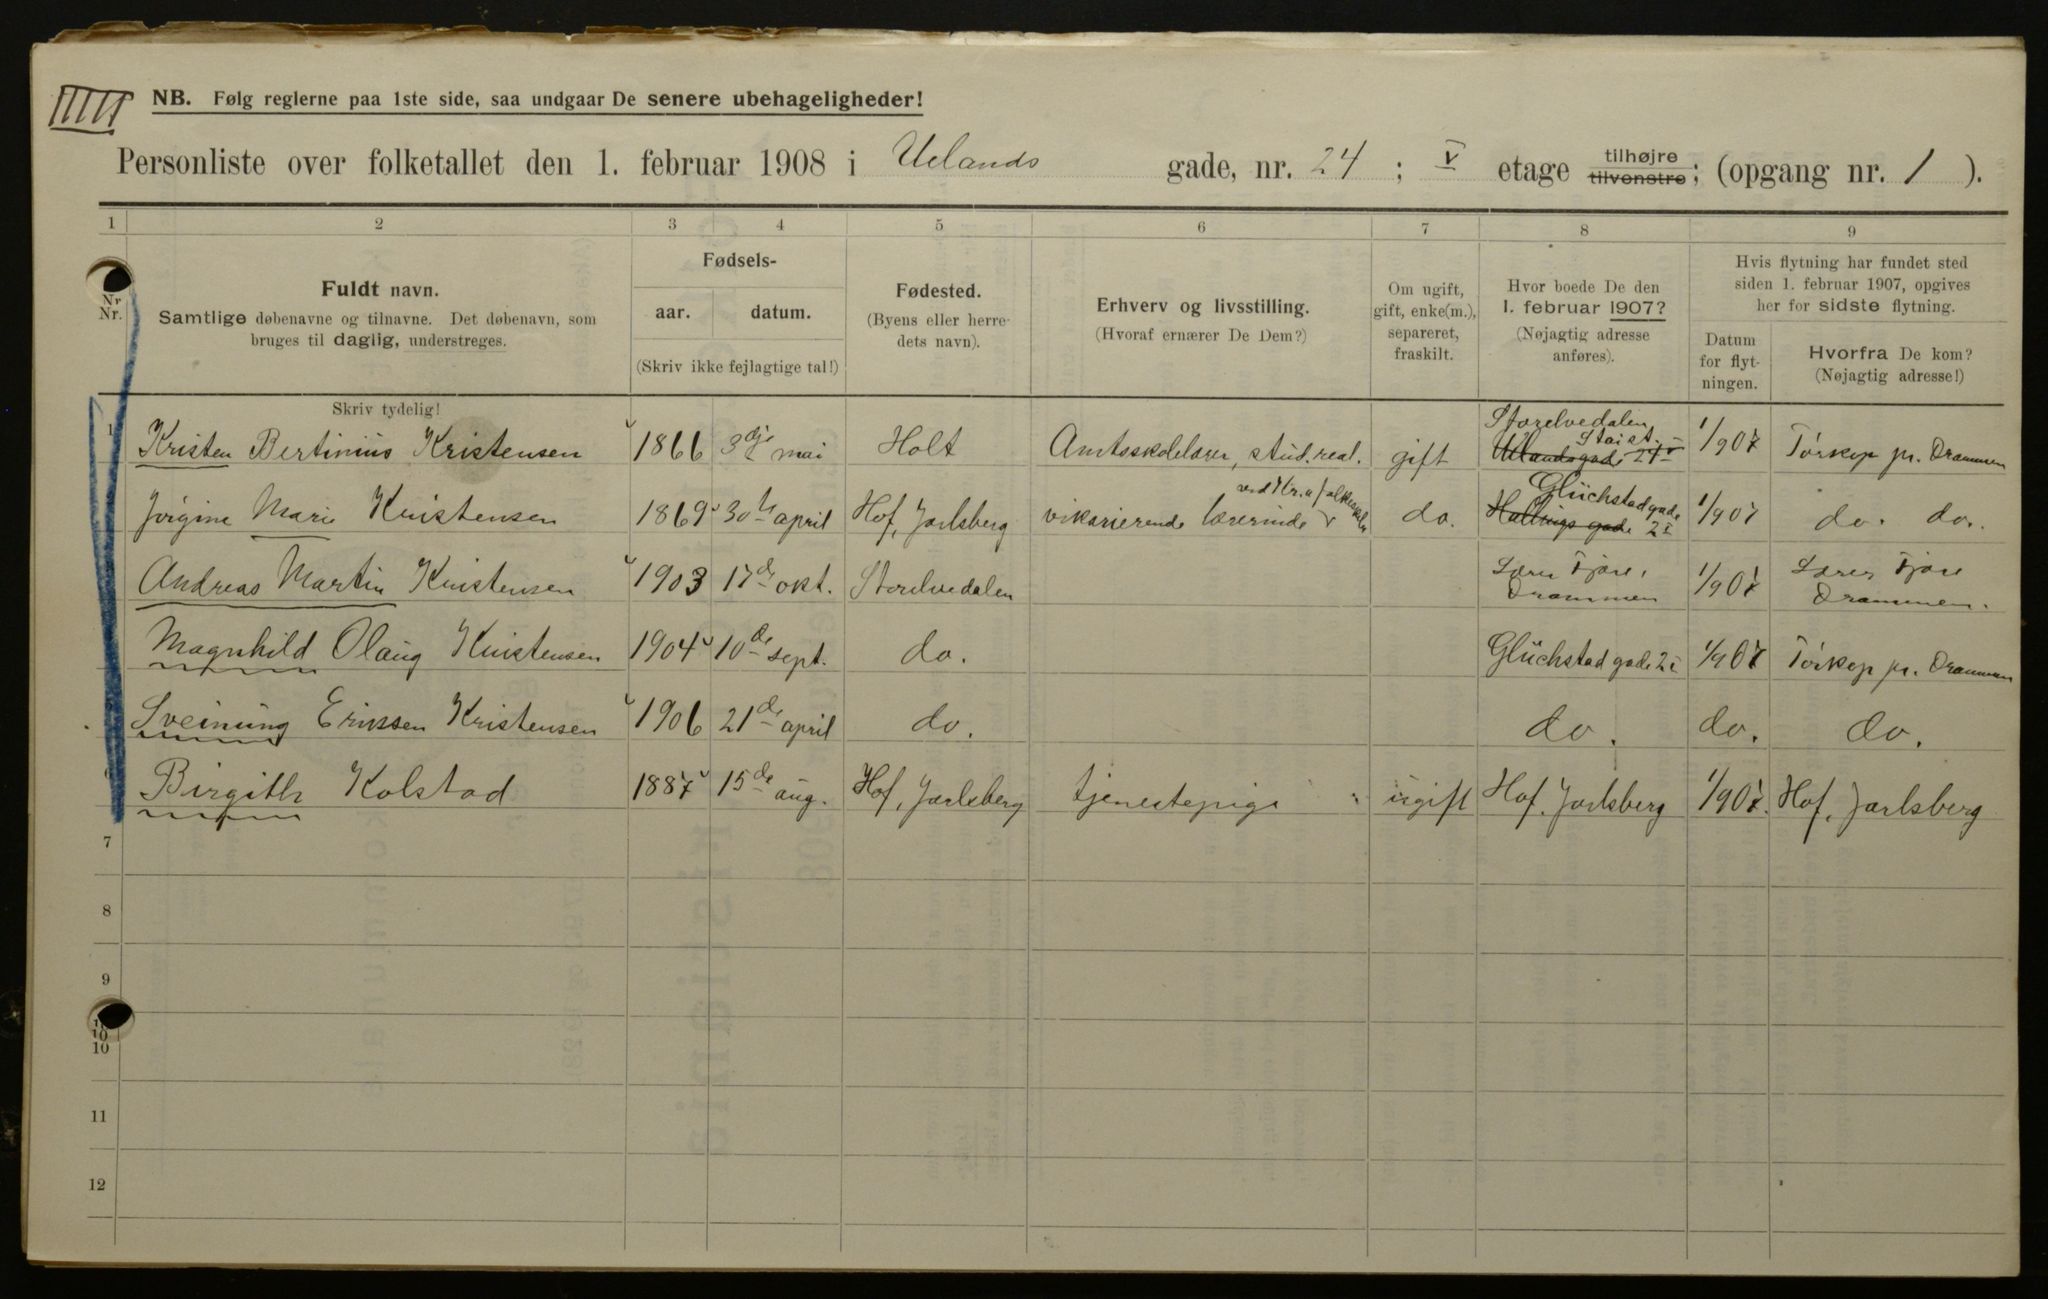 NB. Følg reglerne paa 1ste side, saa undgaar De senere ubehageligheder!
Personliste over folketallet den 1. februar 1908 i Uelands gade, nr. 24 ; V etage tilhøjre tilvenstre; (opgang nr. 1 ).
1 2 3 4 5 6 7 8 9
Nr. Nr.
Fuldt navn.
Samtlige døbenavne og tilnavne. Det døbenavn, som
bruges til daglig, understreges.
Fødsels-
aar. datum.
(Skriv ikke fejlagtige tal!)
Fødested.
(Byens eller herre-
dets navn).
Erhverv og livsstilling.
(Hvoraf ernærer De Dem?)
Om ugift,
gift, enke(m.),
separeret,
fraskilt.
Hvor boede De den
1. februar 1907?
(Nøjagtig adresse
anføres).
Hvis flytning har fundet sted
siden 1. februar 1907, opgives
her for sidste flytning.
Datum
for flyt-
ningen.
Hvorfra De kom?
(Nøjagtig adresse!)
Skriv tydelig!
1 Kristen Bertinius Kristensen 1866 3dje mai Holt Amtsskolelærer, stud. real. gift Storelvedalen Uelandsgade 24 V 1/9 07 Tørkop pr. Drammen
Jørgine Marie Kristensen 1869 30te april Hof, Jarlsberg vikarierende lærerinde ved Kr.a folkeskole do. Glückstadgade 2 I Hallings gade 1/9 07 do. do.
Andreas Martin Kristensen 1903 17de okt. Storelvedalen Lærer Fjøse, Drammen 1/9 07 Lærer Fjøse Drammen.
Magnhild Olaug Kristensen 1904 10de sept. do. Glückstad gade 2 I 1/9 07 Tørkop pr. Drammen
Sveinung Kristensen 1906 21de april do. do. do. do.
6 Birgith Kolstad 1887 15de aug. Hof, Jarlsberg tjenestepige ugift Hof. Jarlsberg 1/9 07. Hof, Jarlsberg
7
8
9
10
10
11
12